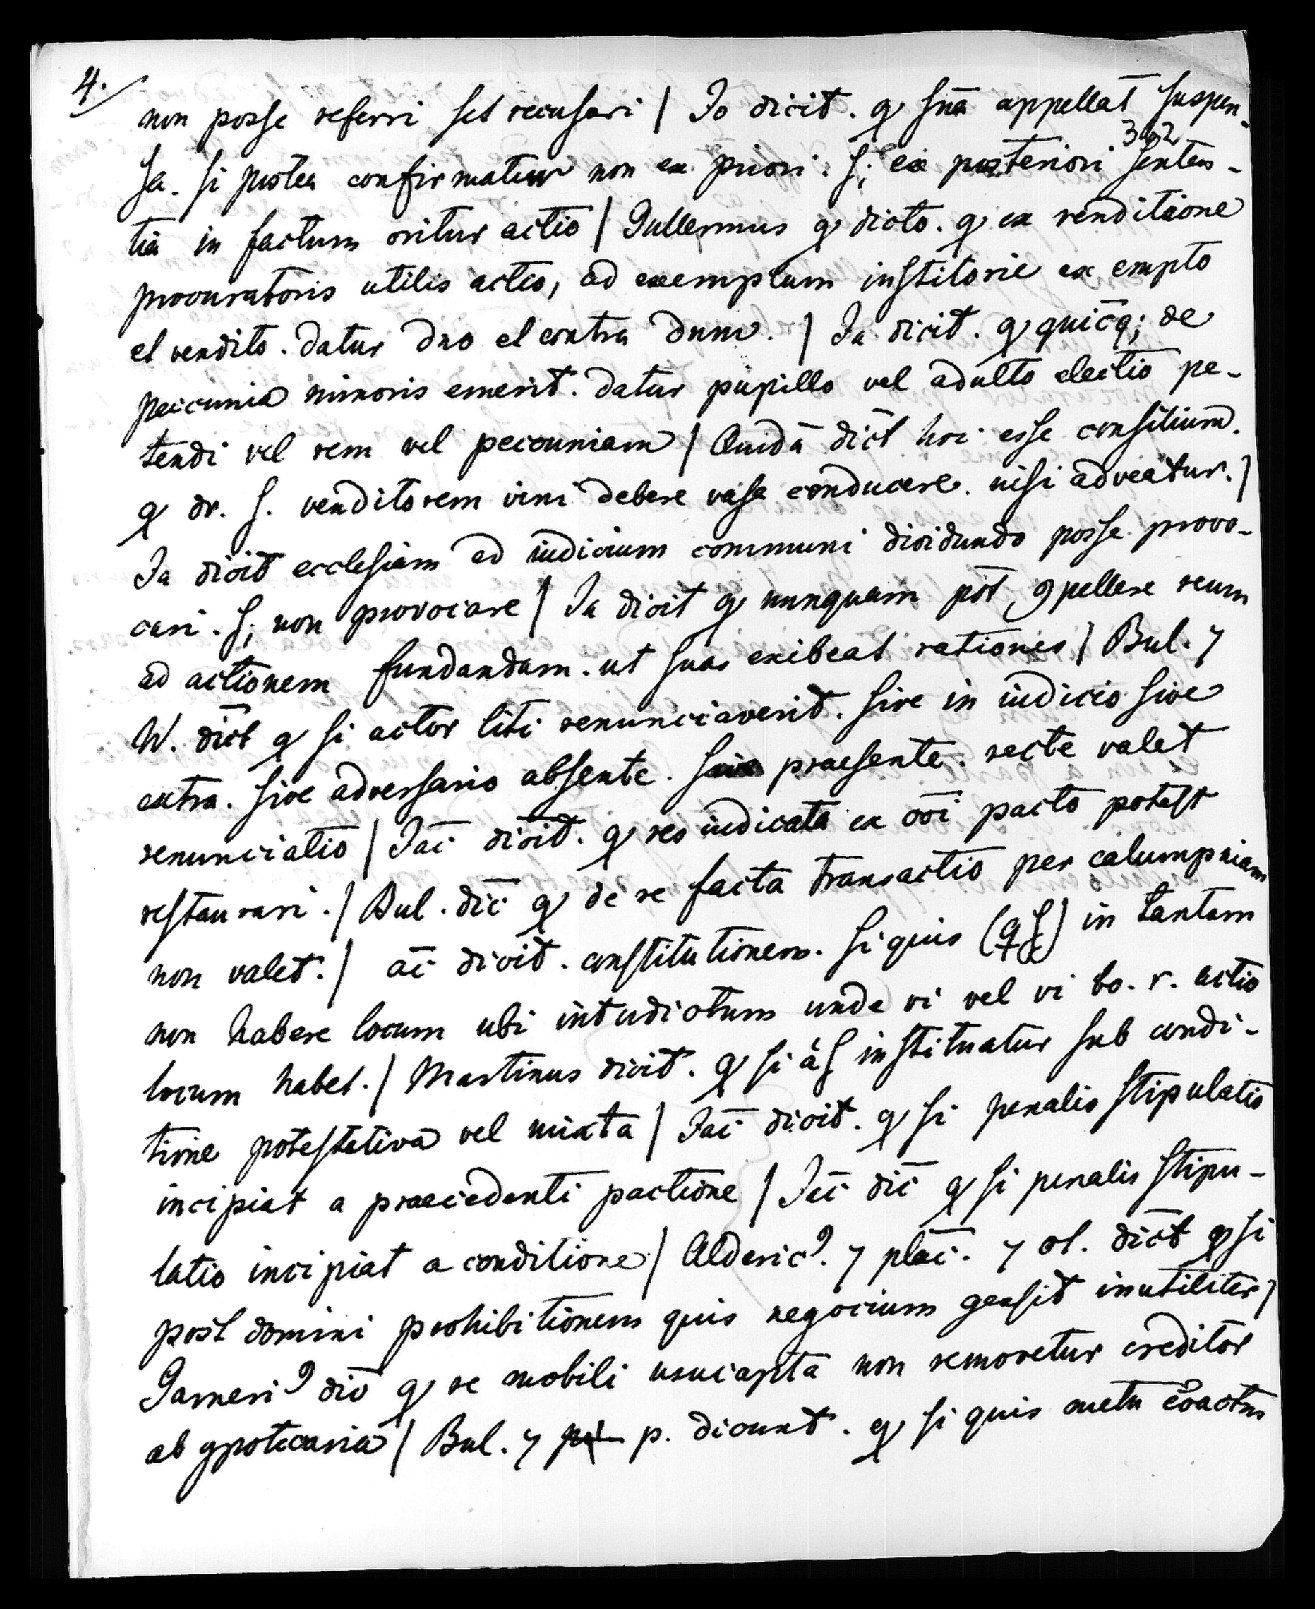 4.
non posse referri set recusari / Jo dicit. q snā appellat suspen-
302
sa. si postea confirmatur non ex priori: s; ex posteriori senten-
tia in factum oritur actio / Gullermus q dicto. q ex venditione
procuratoris utilis actio, ad exemplum institorie ex empto
et vendito. datur dno et contra dnm. / Ia dicit. q quicq; de
peccunia minoris emerit. datur pupillo vel adulto electio pe-
tendi vel rem vel peccuniam / Quidā dict hoi esse consilium.
q dr. s. venditorem vini debere vasa conducere. nisi adveātur. /
Ia dicit ecclesiam ad iudicium communi dividundo posse provo-
cari. s; non provocare / Ia dicit q nunquam pōt 9pellere reum
ad actionem fundandam. ut suas exibeat rationes / Bul. 7
W. dict q si actor liti renunciaverit. sive in iudicio sive
extra. sive adversario absente. sive praesente. recte valet
renunciatio / Iac̄ dicit. q res iudicata ex ōōi pacto potest
restaurari. / Bul. dic̄ q de re facta transactio per calumpniam
non valet. / ac̄ dicit. constitutionem. si quis (qs) in tantam
non habere locum ubi interdictum unde vi vel vi bo. r. actio
locum habet. / Martinus dicit. q si ās instituatur sub condi-
tione potestativa vel mixta / Iac̄ dicit. q si penalis stipulatio
incipiat a praecedenti pactione / Iac̄ dic̄ q si penalis stipu-
latio incipiat a conditione / Alderic9. 7 plac̄. 7 ol. dict q si
post domini prohibitionem quis negocium gessit inutiliter /
Garneri9 dic̄ q re mobili usucapta non removetur creditor
ab ypotecaria / Bul. 7 p. dicunt. q si quis metu coactus